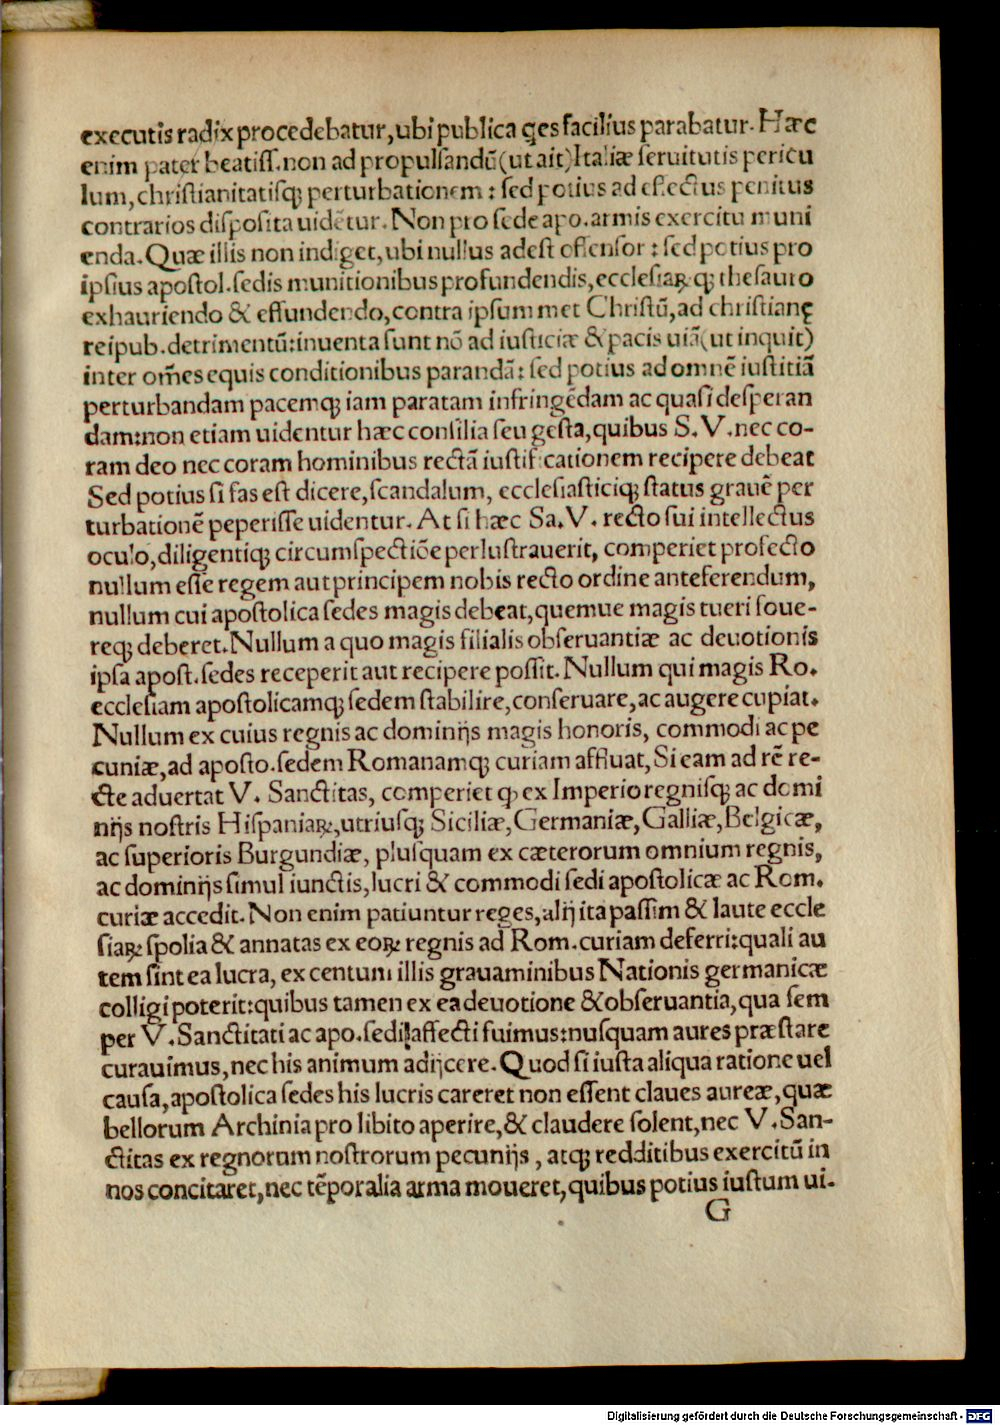 executis radix procedebatur,ubi publica q̃es facilius parabatur. Hæc
enim pater beatiſſ.non ad propulſandũ(ut ait)Italiæ ſeruitutis pericu
lum,chriſtianitatiſq; perturbationem : ſed potius ad effectus penitus
contrarios diſpoſita uidẽtur. Non pro ſede apo.armis exercitu muni
enda.Quæ illis non indiget,ubi nullus adeſt offenſor : ſed potius pro
ipſius apoſtol.ſedis munitionibus profundendis,eccleſiaꝝ q; theſauro
exhauriendo & effundendo,contra ipſum met Chriſtũ,ad chriſtianę
reipub.detrimentũ:inuenta ſunt nõ ad iuſticiæ & pacis uiã(ut inquit)
inter om̃es equis conditionibus parandã: ſed potius ad omnẽ iuſtitiã
perturbandam pacemq; iam paratam infringẽdam ac quaſi deſperan
dam:non etiam uidentur hæc conſilia ſeu geſta,quibus S.V.nec co-
ram deo nec coram hominibus rectã iuſtificationem recipere debeat
Sed potius ſi fas eſt dicere,ſcandalum, eccleſiaſticiq; ſtatus grauẽ per
turbationẽ peperiſſe uidentur. At ſi hæc Sa.V. recto ſui intellectus
oculo,diligentiq; circumſpectiõe perluſtrauerit, comperiet profecto
nullum eſſe regem aut principem nobis recto ordine anteferendum,
nullum cui apoſtolica ſedes magis debeat,quemue magis tueri foue-
req; deberet.Nullum a quo magis filialis obſeruantiæ ac deuotionis
ipſa apoſt.ſedes receperit aut recipere poſſit. Nullum qui magis Ro.
eccleſiam apoſtolicamq; ſedem ſtabilire,conſeruare,ac augere cupiat.
Nullum ex cuius regnis ac dominijs magis honoris, commodi ac pe
cuniæ,ad apoſto.ſedem Romanamq; curiam affluat,Si eam ad rẽ re-
cte aduertat V. Sanctitas, comperiet ꝙ ex Imperio regniſq; ac domi
nijs noſtris Hiſpaniaꝝ,utriuſq; Siciliæ,Germaniæ,Galliæ,Belgicæ,
ac ſuperioris Burgundiæ, pluſquam ex cæterorum omnium regnis,
ac dominijs ſimul iunctis,lucri & commodi ſedi apoſtolicæ ac Rom.
curiæ accedit. Non enim patiuntur reges,alij ita paſſim & laute eccle
ſiaꝝ ſpolia & annatas ex eoꝝ regnis ad Rom.curiam deferri:quali au
tem ſint ea lucra, ex centum illis grauaminibus Nationis germanicæ
colligi poterit:quibus tamen ex ea deuotione & obſeruantia,qua ſem
per V. Sanctitati ac apo.ſedi affecti fuimus:nuſquam aures præſtare
curauimus,nec his animum adijcere. Quod ſi iuſta aliqua ratione uel
cauſa,apoſtolica ſedes his lucris careret non eſſent claues aureæ,quæ
bellorum Archinia pro libito aperire,& claudere ſolent,nec V.San-
ctitas ex regnorum noſtrorum pecunijs , atq; redditibus exercitũ in
nos concitaret,nec tẽporalia arma moueret,quibus potius iuſtum ui-
G
Digitalisierung gefördert durch die Deutsche Forschungsgemeinschaft - DFG